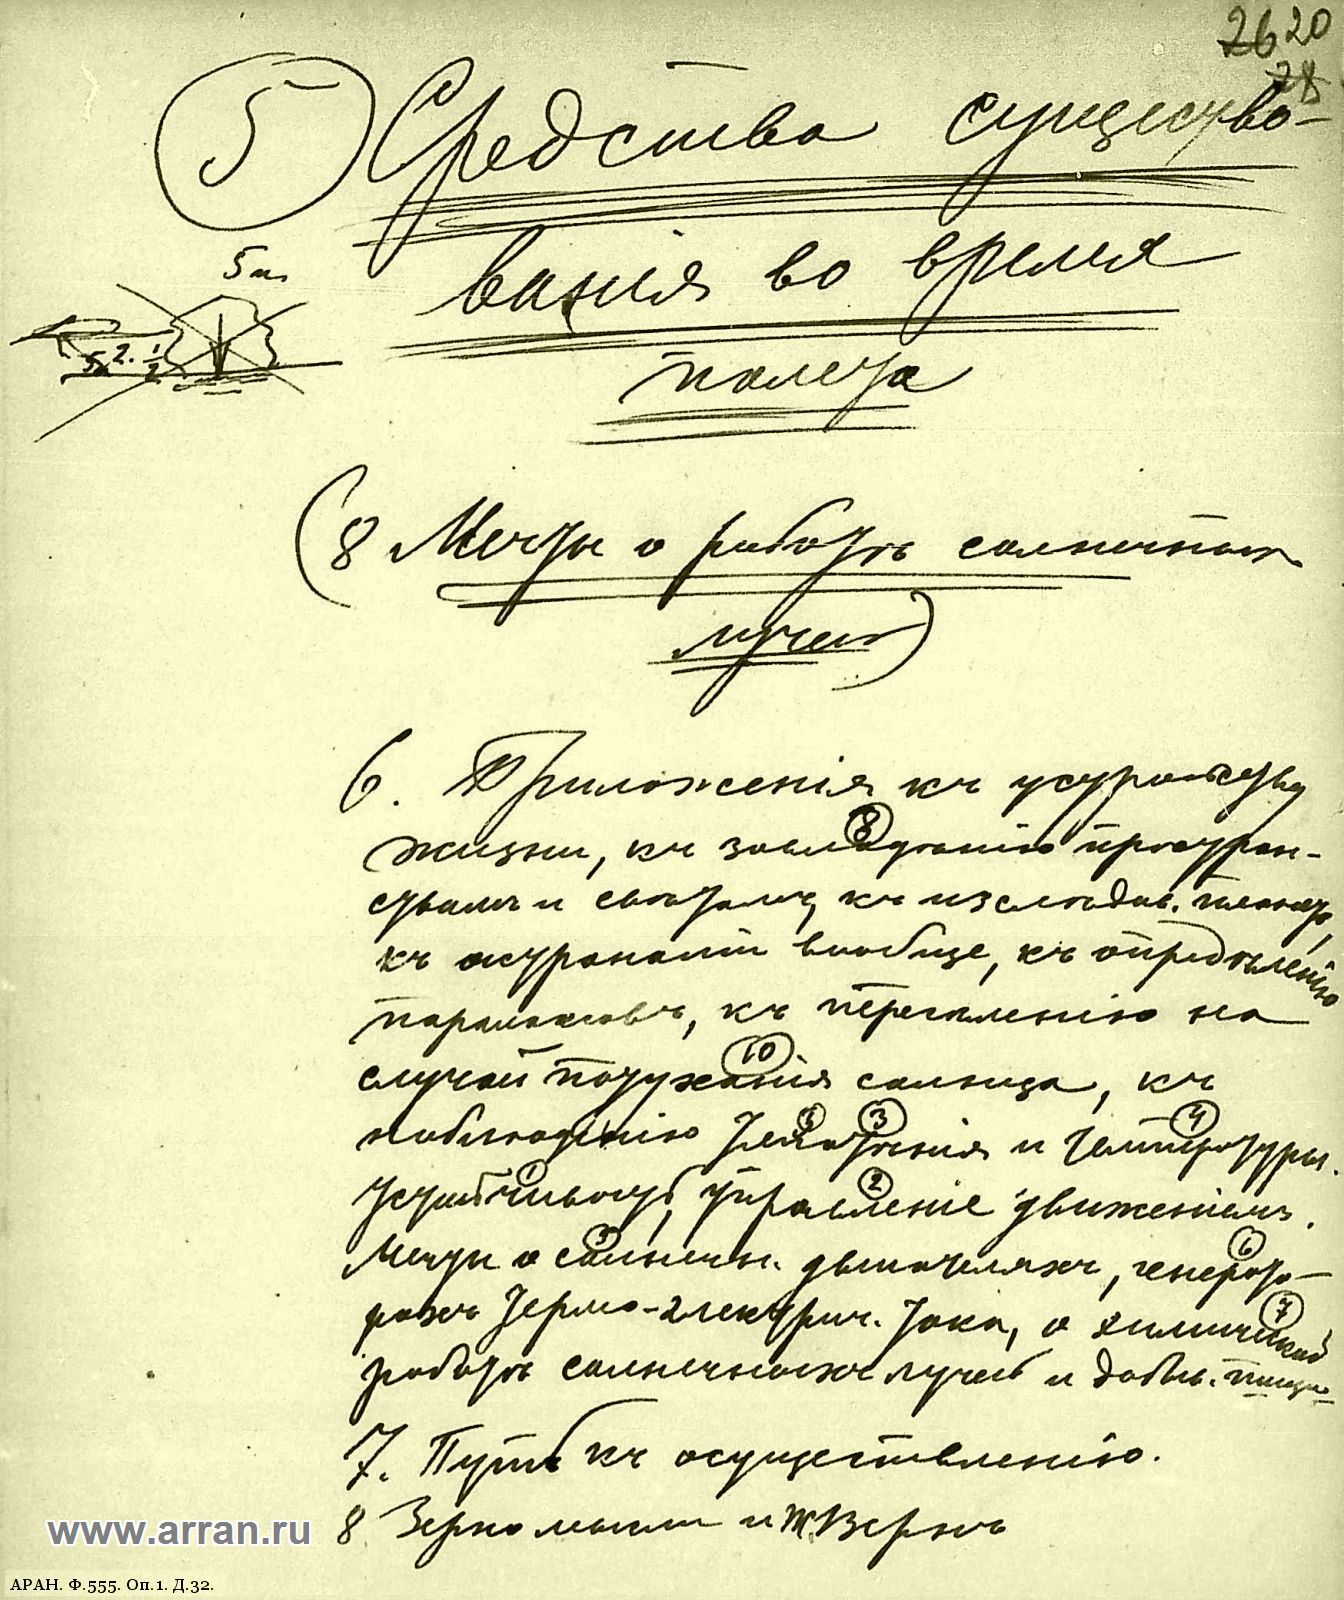 26 20
28
5 Средства существо-
ванія во время
полета
5 м
5 2. 1/2
(8 Мечты о работѣ солнечных
лучей)
6. Приложенія къ устройству
жизни, къ завладѣнію простран-
ствам и свѣтомъ, къ изслѣдов. планет,
къ астрономіи вообще, къ опредѣленію
параллаксовъ, къ переселенію на
случай потуханія солнца, къ
наблюденію тяготѣнія и температуры.
Устойчивость, управленіе движеніемъ.
Мечты о солнечн. двигателяхъ, генерато-
рахъ термо-электрич. тока, о химической
работѣ солнечныхъ лучей и добыв. пищи
8
10
5 3 4
1 2
5 6
7
7. Путь къ осуществленію.
8 Зерно мысли и Ж Вернъ
www.arran.ru
АРАН. Ф.555. Оп.1. Д.32.